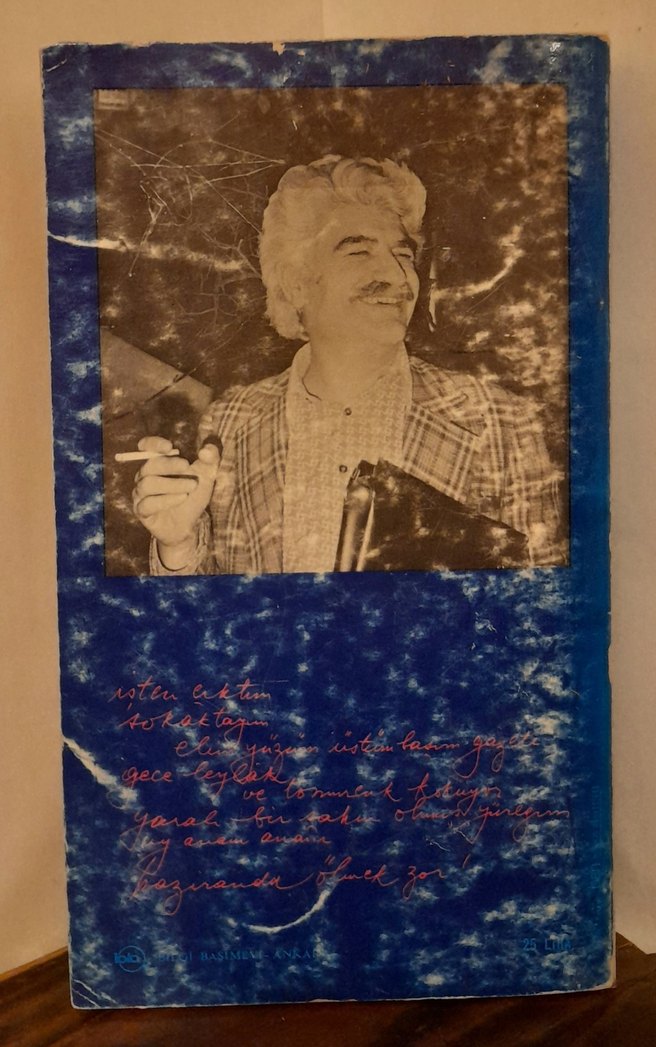 işten çıktım
sokaktayım
elim yüzüm üstümbaşım gazete
gece leylâk
ve tomurcuk kokuyor
yaralı bir şahin olmuş yüreğim
uy anam anam
haziranda ölmek zor!
BİLGİ BASIMEVİ - ANKARA
25 Lira